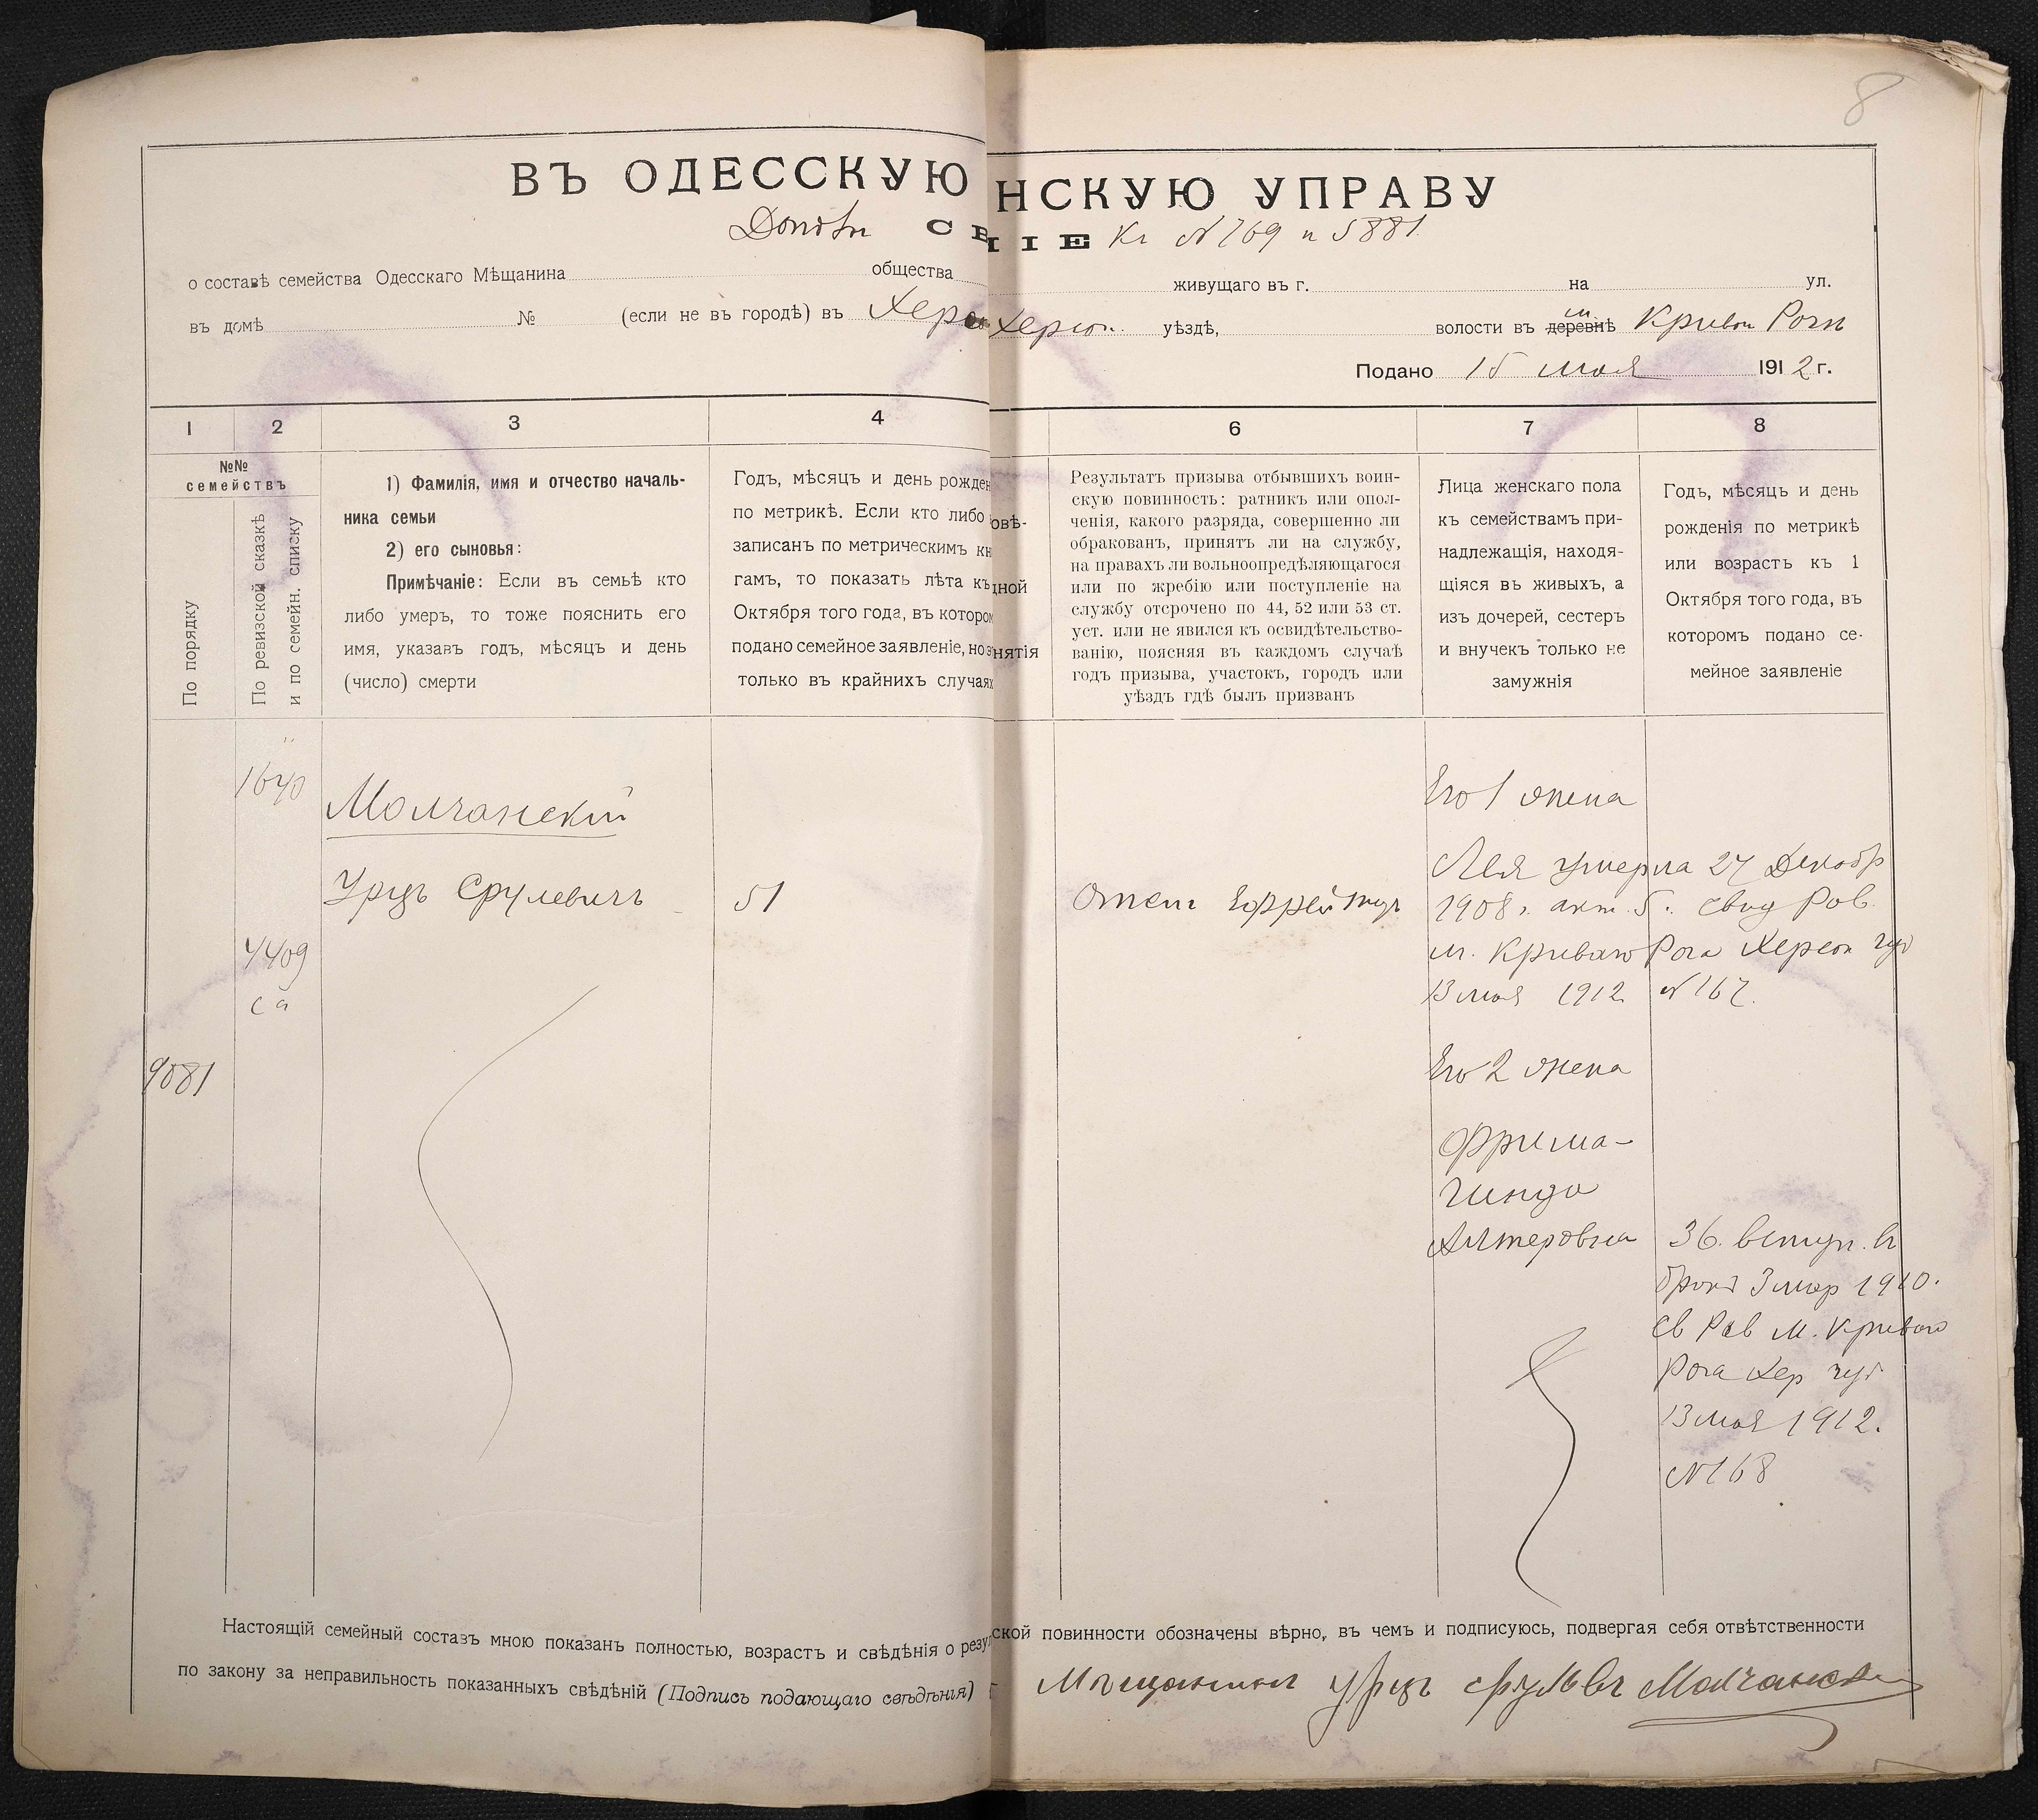 8
ВЪ ОДЕССКУЮ НСКУЮ УПРАВУ
СВ ІЕ Къ №769 и 5881
о составѣ семейства Одесскаго Мѣщанина общества живущаго въ г. на ул.
въ домѣ № (если не въ городѣ) въ Херсон Херсон. уѣздѣ, волости въ деревнѣ м. Кривой Рогъ
Подано 15 мая 1912 г.
1 2 3 4 6 7 8
№№
семействъ
По порядку
По ревизской сказкѣ
и по семейн. списку
1) Фамилія, имя и отчество началь-
ника семьи
2) его сыновья:
Примѣчаніе: Если въ семьѣ кто
либо умеръ, то тоже пояснить его
имя, указавъ годъ, мѣсяцъ и день
(число) смерти
Годъ, мѣсяцъ и день рожден
по метрикѣ. Если кто либо
записанъ по метрическимъ кн
гамъ, то показать лѣта къ
Октября того года, въ котором
подано семейное заявленіе, но э
только въ крайнихъ случаях
овѣ-
дной
нятія
Результатъ призыва отбывшихъ воин-
скую повинность: ратникъ или опол-
ченія, какого разряда, совершенно ли
обракованъ, принятъ ли на службу,
на правахъ ли вольноопредѣляющагося
или по жребію или поступленіе на
службу отсрочено по 44, 52 или 53 ст.
уст. или не явился къ освидѣтельство-
ванію, поясняя въ каждомъ случаѣ
годъ призыва, участокъ, городъ или
уѣздъ гдѣ былъ призванъ
Лица женскаго пола
къ семействамъ при-
надлежащія, находя-
щіяся въ живыхъ, а
изъ дочерей, сестеръ
и внучекъ только не
замужнія
Годъ, мѣсяцъ и день
рожденія по метрикѣ
или возрастъ къ 1
Октября того года, въ
которомъ подано се-
мейное заявленіе
1640
Молчанскій
Урцъ Срулевичъ 51
4409
9081
Ефрейторъ
Его 1 жена
Лея умерла 27 Декабр
1908 г. акт. 5. свид Рав.
м. Криваго Рога Херсон губ
13 мая 1912 №167.
Его 2 жена
Фрима-
Гинда
Алтеровна
36. вступ. въ
бракъ 3 мар 1910.
Св Рав м. Криваго
Рога Хер губ
13 мая 1912.
№168
Настоящій семейный составъ мною показанъ полностью, возрастъ и свѣдѣнія о резу ской повинности обозначены вѣрно, въ чемъ и подписуюсь, подвергая себя отвѣтственности
по закону за неправильность показанныхъ свѣдѣній (Подпись подающаго свѣдѣнія) Мѣщанинъ Урцъ Срулевъ Молчански